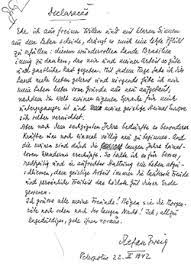 Declaração
Ehe ich aus freiem Willen und mit klaren Sinnen
aus dem Leben scheide, drängt es mich eine letzte Pflicht
zu erfüllen: diesem wundervollen Lande Brasilien
innig zu danken, das mir und meiner Arbeit so gute
und gastliche Rast gegeben. Mit jedem Tage habe ich dies
Land mehr lieben gelernt und nirgends hätte ich mir
mein Leben lieber vom Grunde aus neu aufgebaut,
nachdem die Welt meiner eigenen Sprache für mich
untergegangen ist und meine geistige Heimat Europa
sich selber vernichtet.
Aber nach dem sechzigsten Jahre bedürfte es besonderer
Kräfte um noch einmal völlig neu zu beginnen. Und
die meinen sind durch die langen Jahre heimatlosen
Wanderns erschöpft. So halte ich es für besser, rechtzeitig
und in aufrechter Haltung ein Leben abzuschliessen,
dem geistige Arbeit immer die lauterste Freude
und persönliche Freiheit das höchste Gut dieser Erde
gewesen.
Ich grüsse alle meine Freunde! Mögen sie die Morgenröte
noch sehen nach der langen Nacht! Ich, allzu
Ungeduldiger, gehe ihnen voraus.
Stefan Zweig
Petropolis 22. II 1942